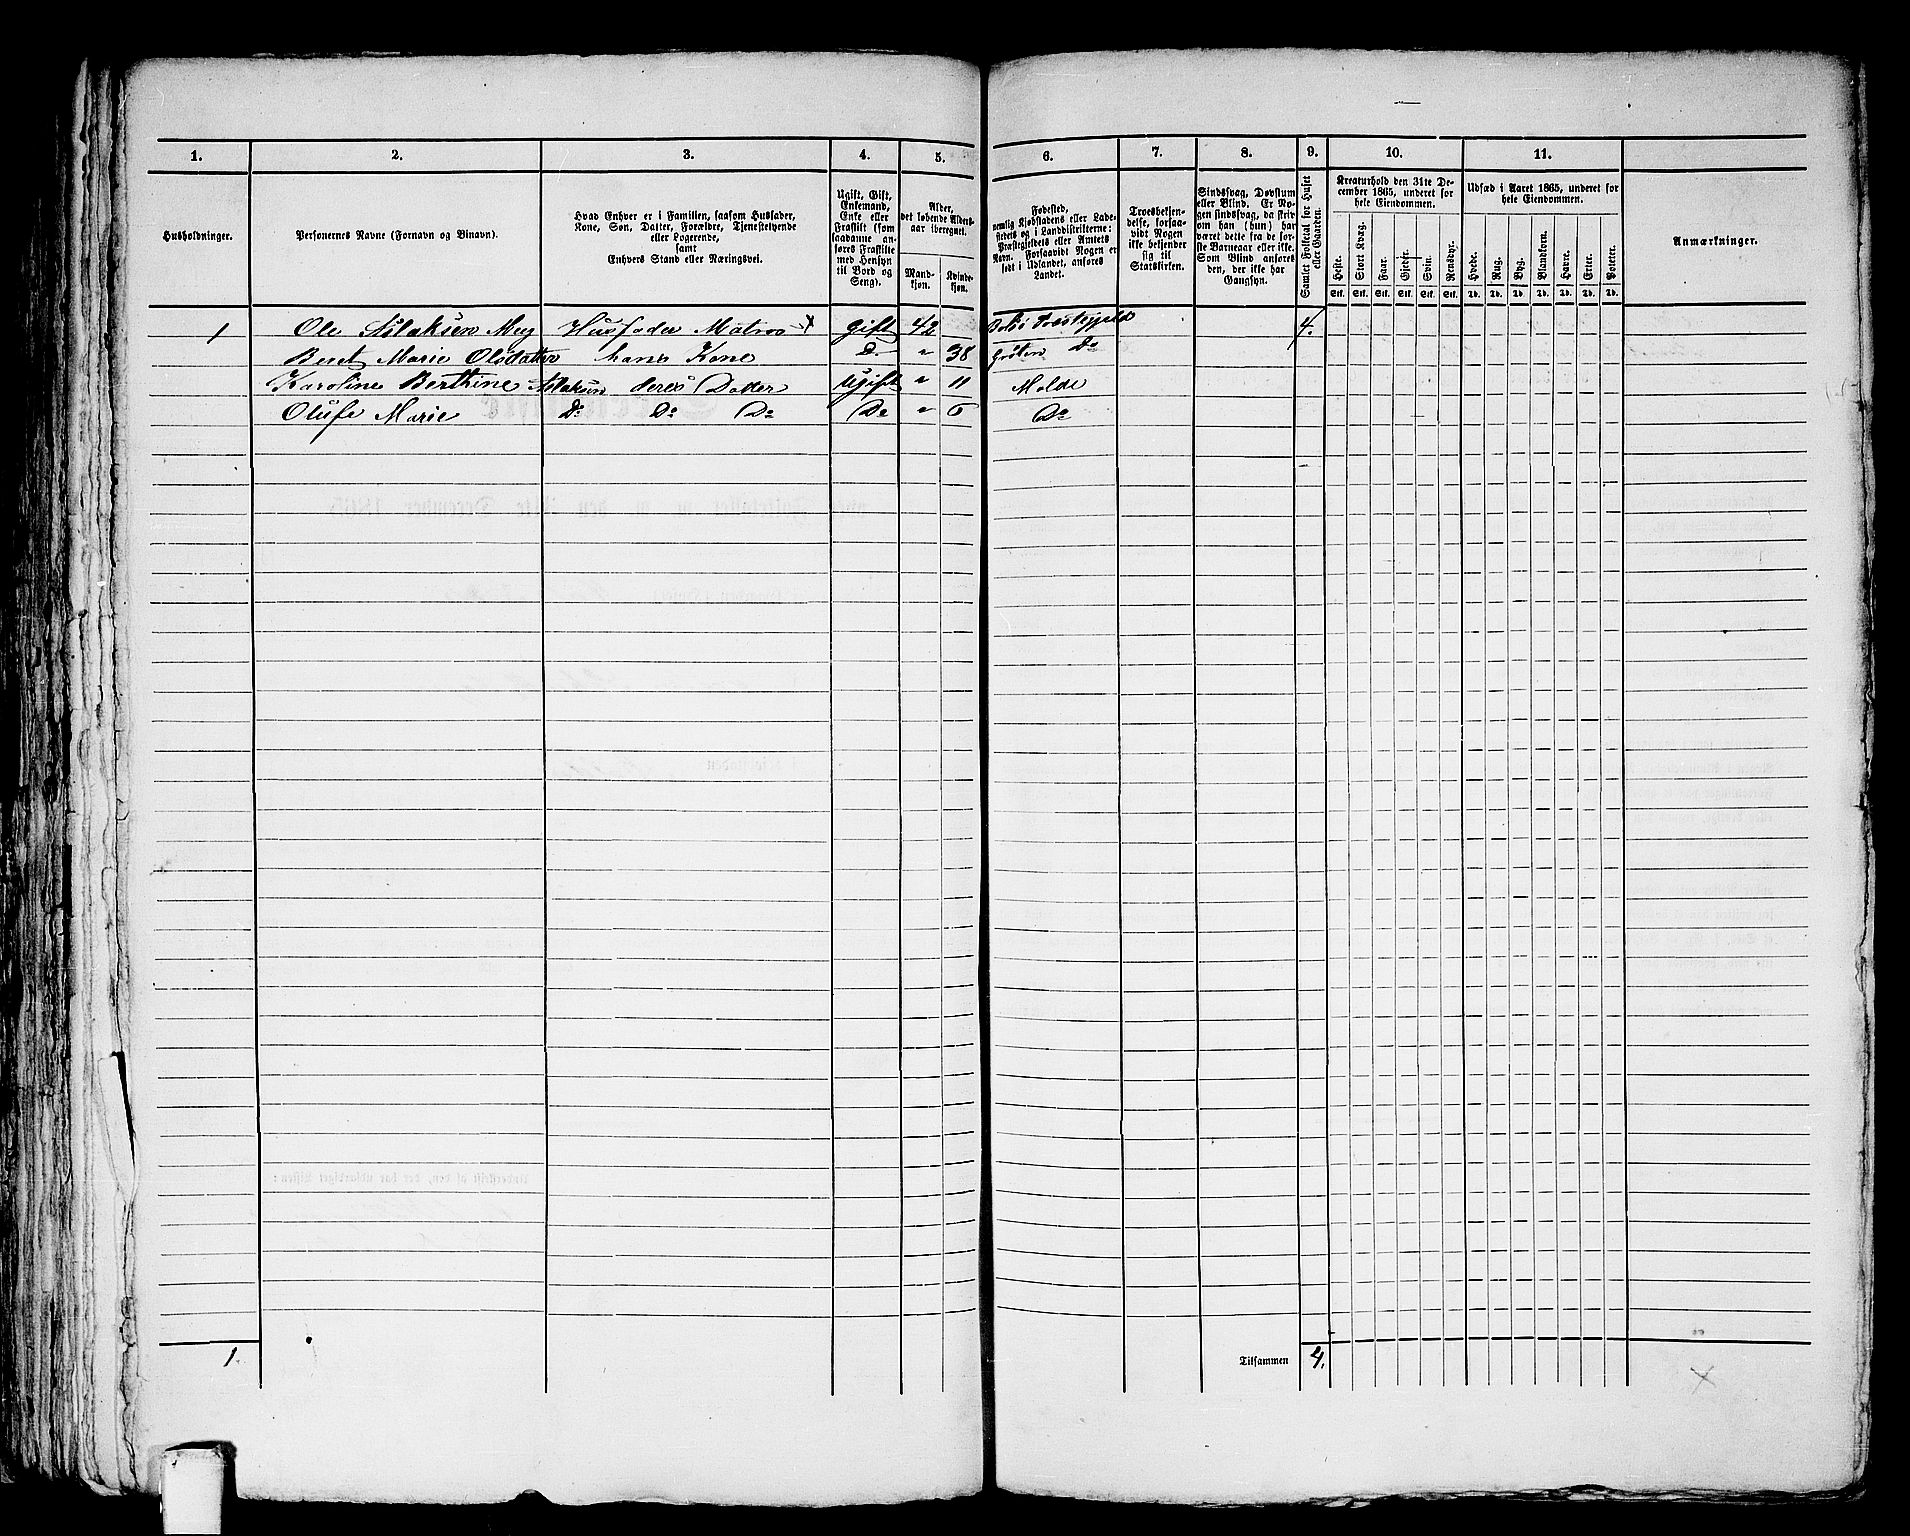 1. 2. 3. 4. 5. 6. 7. 8. 9. 10. 11.
Husholdninger.
Personernes Navne (Fornavn og Tilnavn).
Hvad Enhver er i Familien, saasom Husfader,
Kone, Søn, Datter, Forældre, Tjenestetyende
eller Logerende,
samt
Enhvers Stand eller Næringsvei.
Ugift, Gift,
Enkemand,
Enke eller
Fraskilt (som
saadanne an-
føres Fraskilte
med Hensyn
til Bord og
Seng).
Alder,
det løbende Alders-
aar iberegnet.
Mand-
kjøn.
Kvinde-
kjøn.
Fødested,
nemlig Kjøbstadens eller Lade-
stedets og i Landdistrikterne:
Præstegjeldets eller Amtets
Navn. Forsaavidt Nogen er
født i Udlandet, anføres
Landet.
Troesbekjen-
delse, forsaa-
vidt Nogen
ikke bekjender
sig til
Statskirken.
Sindssvag, Døvstum
eller Blind. Er No-
gen sindssvag, da skriv
om han (hun) har
været dette fra de før-
ste Barneaar eller ikke.
Som Blind anføres
den, der ikke har
Gangsyn.
Samlet Folketal for Huset
eller Gaarden.
Kreaturhold den 31te De-
cember 1865, underet for
hele Eiendommen.
Heste. Stort Kvæg. Faar. Gjeder. Svin. Rensdyr.
Stk. Stk. Stk. Stk. Stk. Stk.
Udsæd i Aaret 1865, underet for
hele Eiendommen.
Hvede. Rug. Byg. Blandkorn. Havre. Erter. Poteter.
Td. Td. Td. Td. Td. Td. Td.
Anmærkninger.
1 Ole Aslaksen Husfader Matros gift 42 4.
Beret Marie Olsdatter hans Kone Do " 38 Do
Karoline Berthine Aslaksen deres Datter Ugift " 11 Molde
Olufe Marie Do Do Do Do " 6 Do
1. Tilsammen 4.